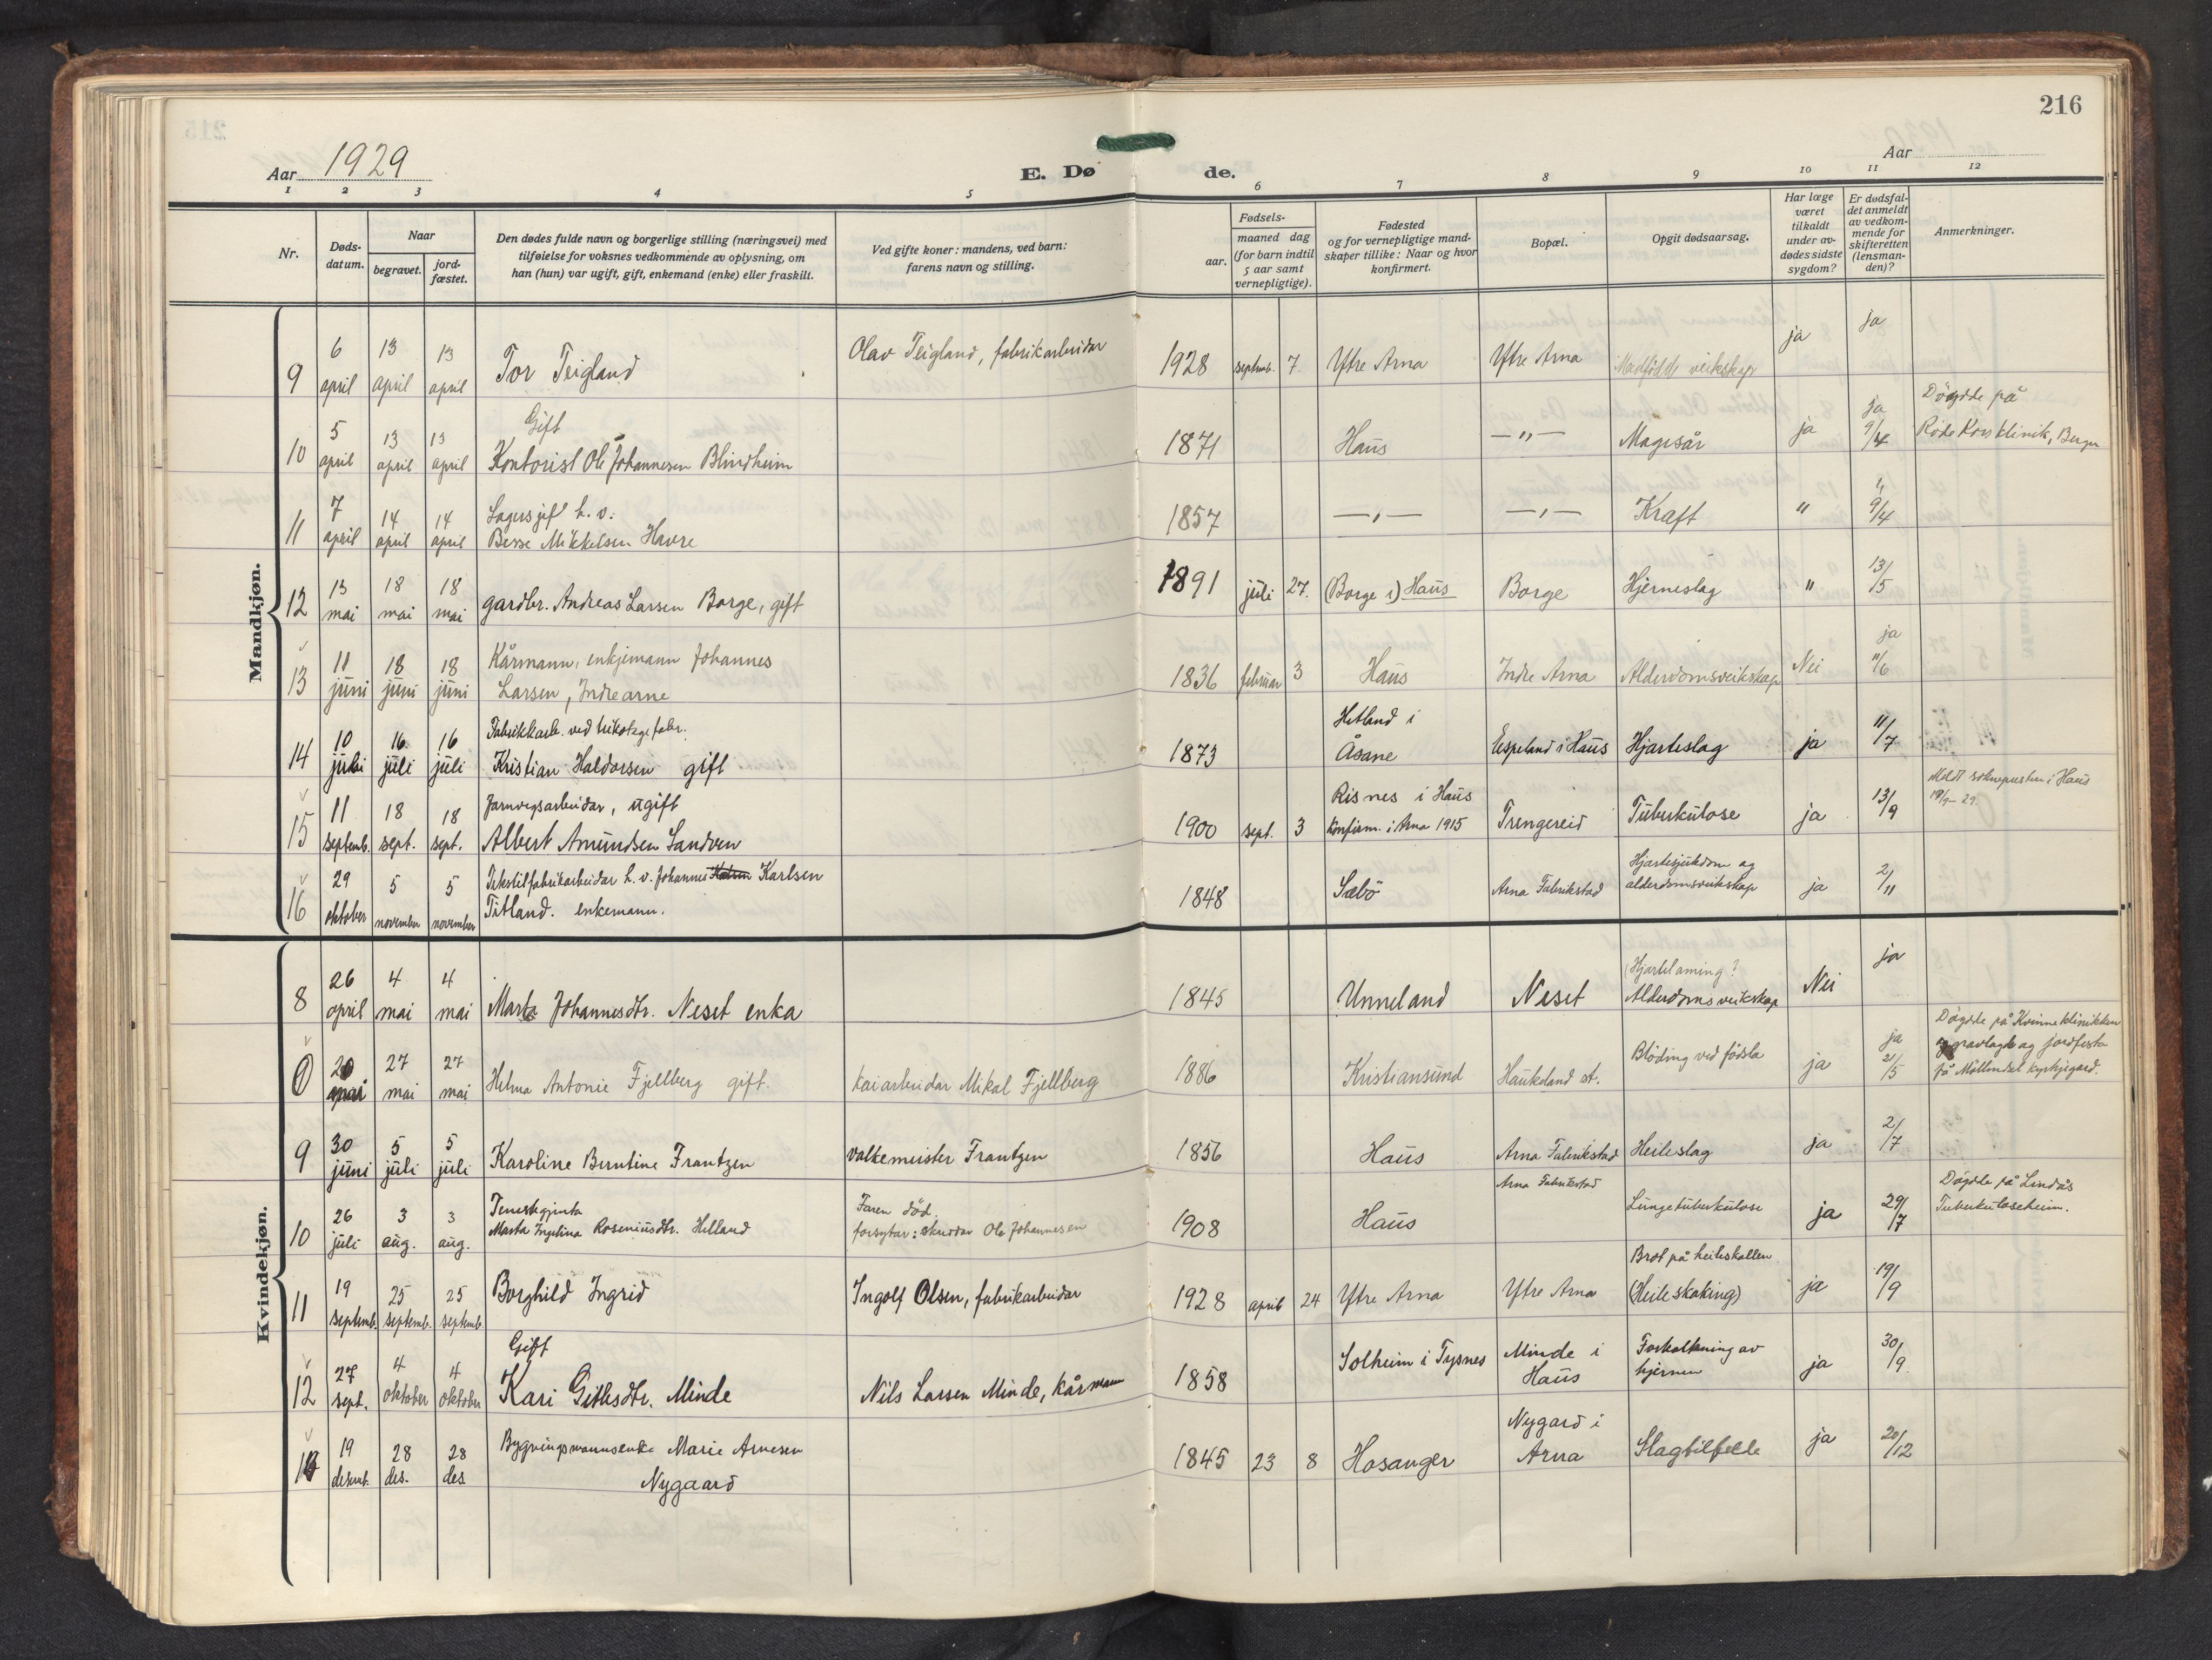 216
Aar 1929
E. Døde.
Aar
1 2 3 4 5 6 7 8 9 10 11 12
Nr.
Døds-
datum.
Naar
begravet.
jord-
fæstet.
Den dødes fulde navn og borgerlige stilling (næringsvei) med
tilføielse for voksnes vedkommende av oplysning, om
han (hun) var ugift, gift, enkemand (enke) eller fraskilt.
Ved gifte koner: mandens, ved barn:
farens navn og stilling.
Fødsels-
aar.
maaned dag
(for barn indtil
5 aar samt
vernepligtige).
Fødested
og for vernepligtige mand-
skaper tillike: Naar og hvor
konfirmert.
Bopæl.
Opgit dødsaarsag.
Har læge
været
tilkaldt
under av-
dødes sidste
sygdom?
Er dødsfal-
det anmeldt
av vedkom-
mende for
skifteretten
(lensman-
den)?
Anmerkninger.
Mandkjøn.
9 6 april 13 april 13 april Tor Teigland Olav Teigland, fabrikarbeidar 1928 septemb. 7. Ytre Arna Ytre Arna Medfödde veikskap ja ja
Gift
10 5 april 13 april 13 april Kontorist Ole Johannesen Blindheim 1871 Haus —„— Magesår ja ja 9/4 Döydde på
Röde Kors klinik, Bergen
11 7 april 14 april 14 april Lagersjef h. v.
Berse Mikkelsen Havre 1857 —„— —„— Kraft " " 9/4
12 13 mai 18 mai 18 mai gardbr. Andreas Larsen Borge, gift 1891 juli 27. (Borge i) Haus Borge Hjerneslag " 13/5
13 11 juni 18 juni 18 juni Kårmann, enkjemann Johannes
Larsen, Indre arne 1836 februar 3 Haus Indre Arna Alderdomsveikskap Nei ja 11/6
14 10 juli 16 juli 16 juli Fabrikkarb. ved trikotagefabr.
Kristian Haldorsen gift 1873 Hetland i
Åsane Espeland i Haus Hjarteslag ja 11/7
15 11 septemb. 18 sept. 18 sept. Jarnvegsarbeidar, ugift
Albert Amundsen Sandven 1900 sept. 3 Risnes i Haus
Konfirm. i Arna 1915 Trengereid Tuberkulose ja 13/9 Meldt soknepresten i Haus
18/9 - 29.
16 29 oktober 5 november 5 november Tekstilfabrikarbeidar h. v. Johannes Karlsen
Titland. enkemann. 1848 Sæbö Arna Fabrikstad Hjartesjukdom og
alderdomsveikskap ja 2/11
Kvindekjøn.
8 26 april 4 mai 4 mai Marta Johannesdtr. Neset enka 1845 Unneland Neset (Hjartelaming?
Alderdomsveikskap Nei ja
0 20 mai 27 mai 27 mai Helma Antonie Fjellberg gift. Kaiarbeidar Mikal Fjellberg 1886 Kristiansund Haukeland st. Blöding ved födsla ja ja 21/5 Döydde på Kvinneklinikken
gravlagt og jordfesta
på Möllendal kyrkjegard.
9 30 juni 5 juli 5 juli Karoline Berntine Frantzen valkemeister Frantzen 1856 Haus Arna Fabrikstad Heileslag ja 2/7
10 26 juli 3 aug. 3 aug. Tenestegjenta
Marta Ingelina Roseniusdtr. Helland Faren död.
forsytar: skreddar Ole Johannesen 1908 Haus Arna Fabrikstad Lungetuberkulose ja 29/7 Döydde på Lindås
Tuberkuloseheim.
11 19 septemb. 25 septemb. 25 septemb. Borghild Ingrid Ingolf Olsen, fabrikarbeidar 1928 april 24 Ytre Arna Ytre Arna Brot på heileskallen
(Heileskaking) ja 19/9
Gift
12 27 sept. 4 oktober 4 oktober Kari Gitlesdtr. Minde Nils Larsen Minde, kårmann 1858 Solheim i Tysnes Minde i
Haus Forkalkning av
hjernen ja 30/9
13 19 desemb. 28 des. 28 des. Bygningsmannsenke Marie Arnesen
Nygaard 1845 23 8 Hosanger Nygard i
Arna Slagtilfelle ja 20/12